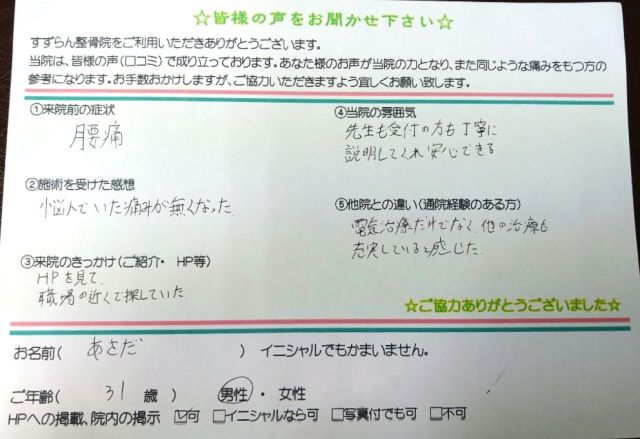 ☆皆様の声をお聞かせ下さい☆
すずらん整骨院をご利用いただきありがとうございます。
当院は、皆様の声(口コミ)で成り立っております。あなた様のお声が当院の力となり、また同じような痛みをもつ方の
参考になります。お手数おかけしますが、ご協力いただきますよう宜しくお願い致します。
①来院前の症状
腰痛
②施術を受けた感想
悩んでいた痛みが無くなった。
③来院のきっかけ(ご紹介・ HP等)
HPを見て、
職場の近くで探していた。
④当院の雰囲気
先生も受付の方も丁寧に
説明してくれ安心できる
⑤他院との違い(通院経験のある方)
電気治療だけでなく、他の治療も
充実していると感じた。
☆ご協力ありがとうございました☆
お名前( あさだ ) イニシャルでもかまいません。
ご年齢( 31 歳 ) 男性 ・ 女性
HPへの掲載、院内の掲示 ☑可 □イニシャルなら可 □写真付でも可 □不可